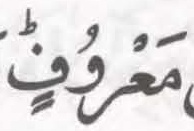 مَعْرُوْفٍؕ